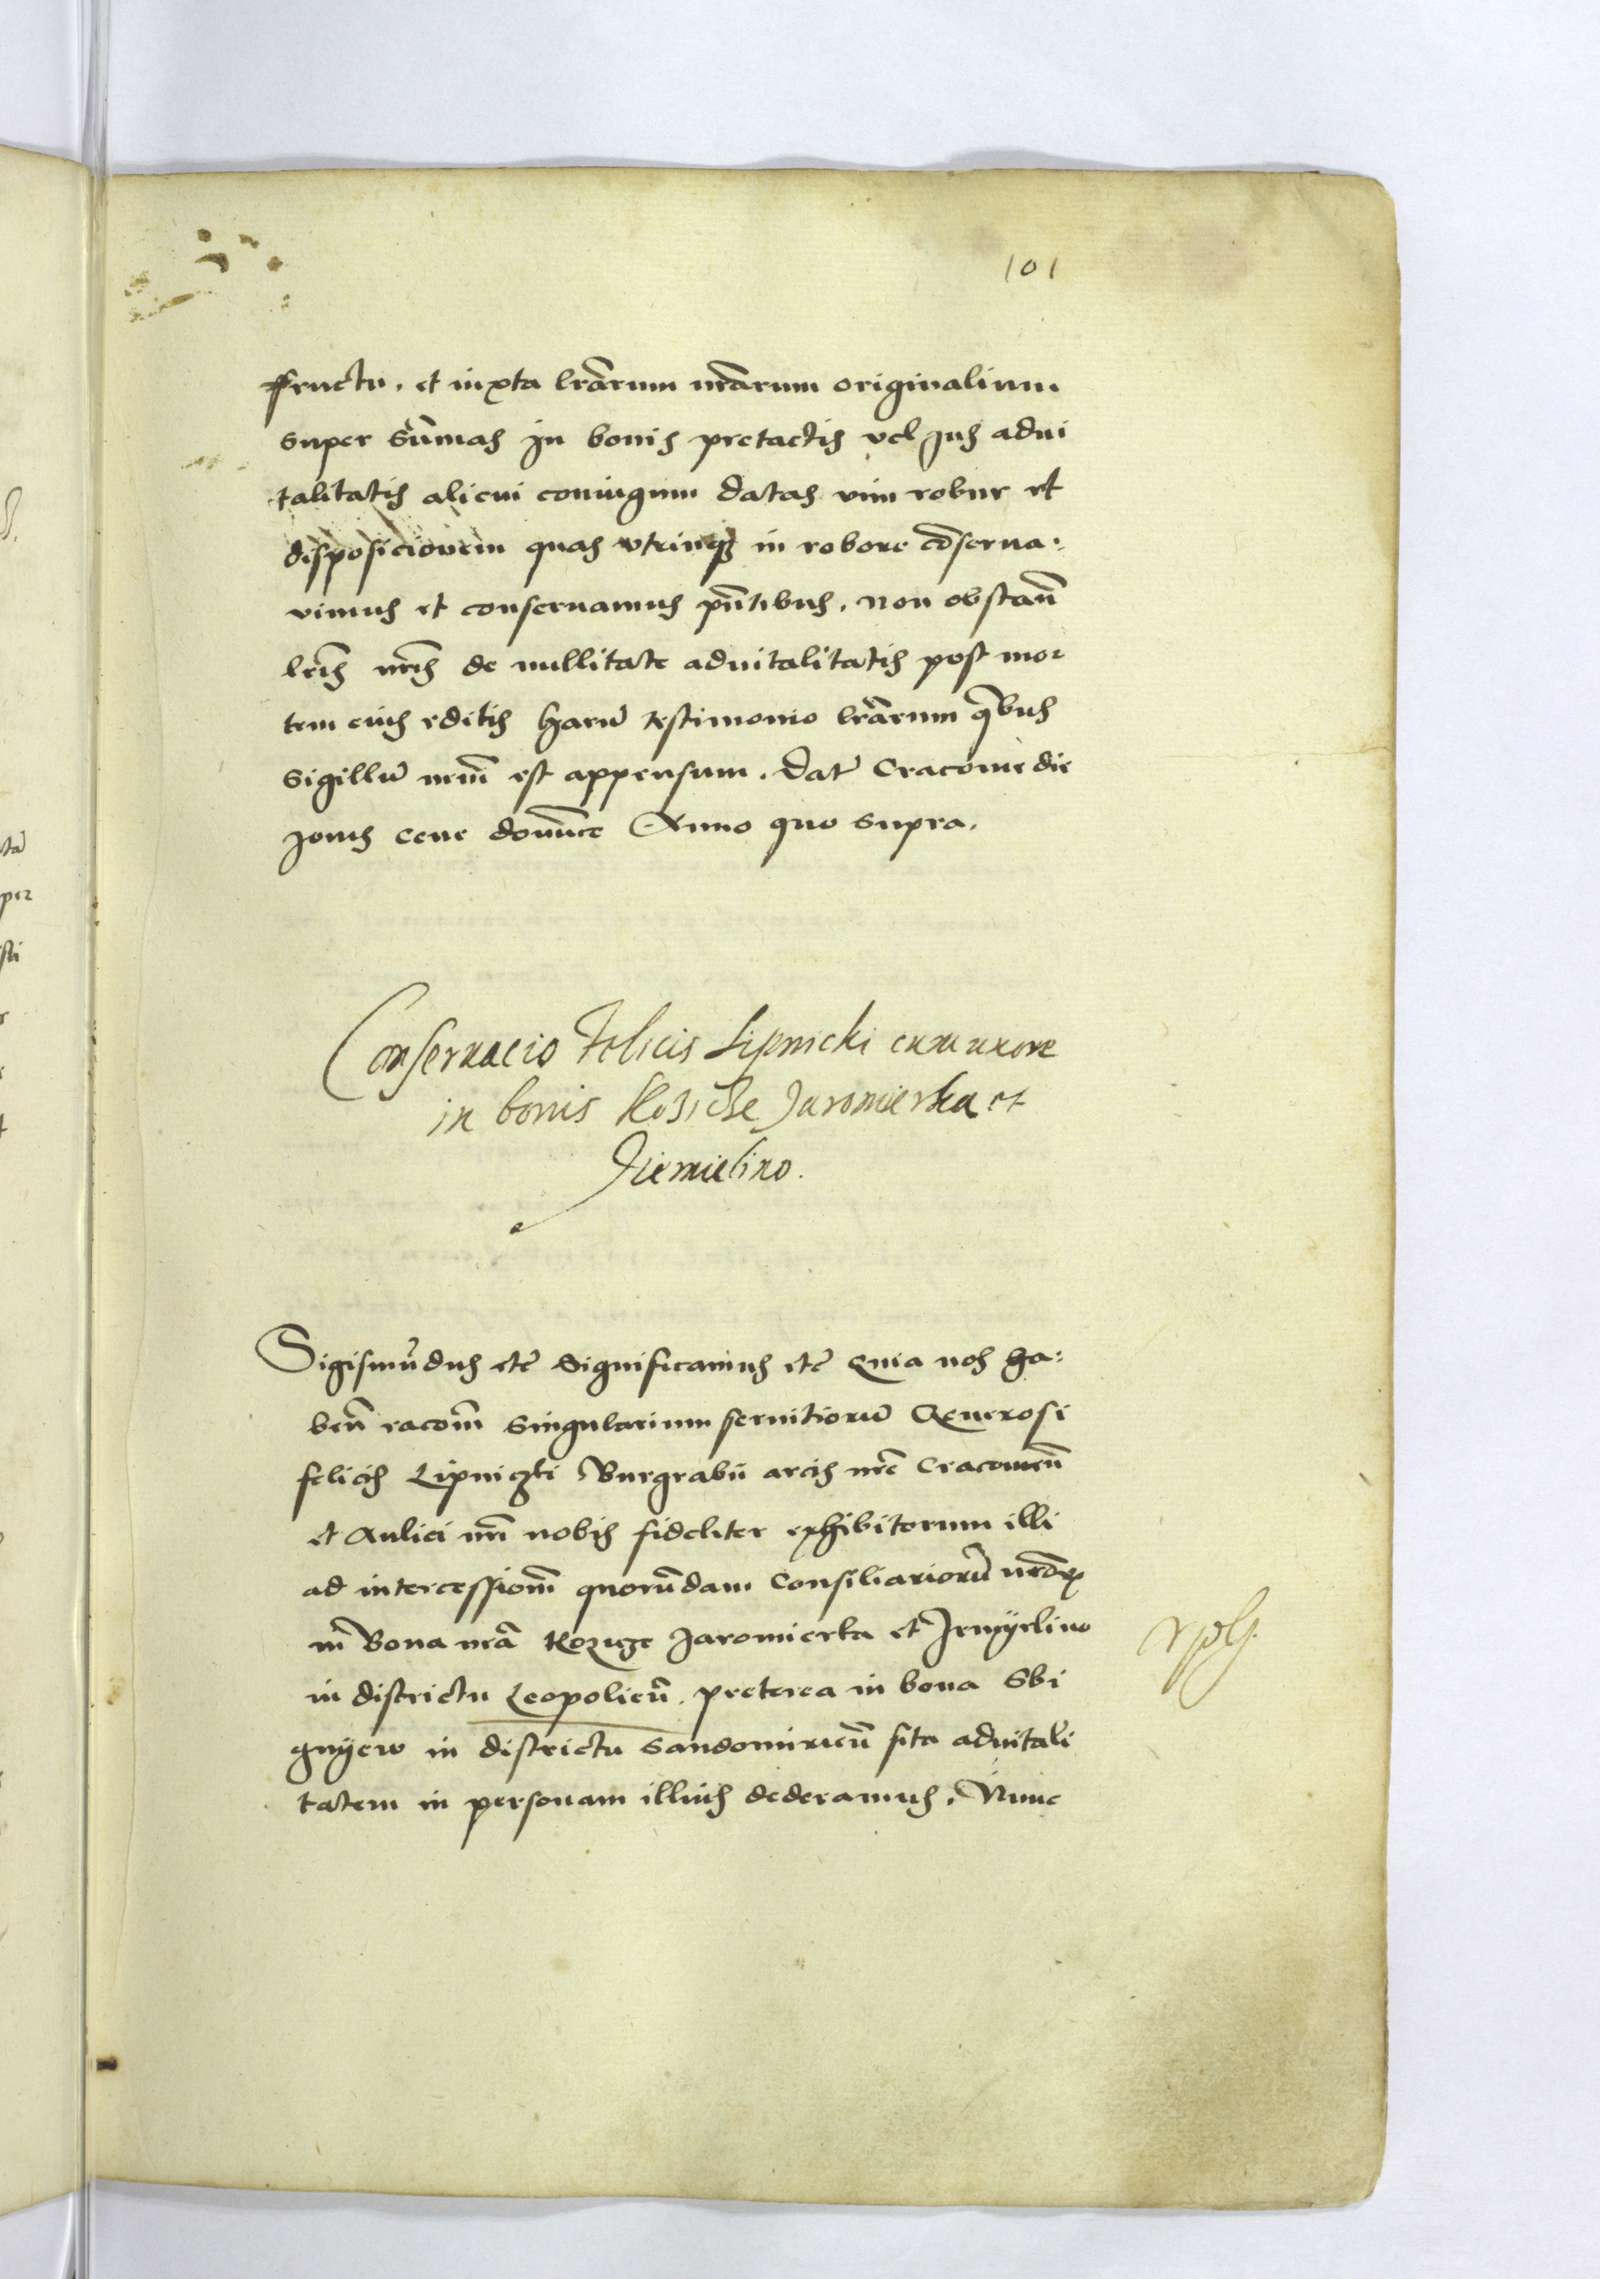 101
ffructu. et iuxta lrãrum nrãrum originalium
super sum̃as in bonis pretactis vel Jus advi
talitatis alicui coniugum datas vim robur et
disposicionem quas vtrinqȝ in robore cõserua:
vimus et conseruamus pñtibus. Non obstañ
lrĩs nrĩs de nullitate advitalitatis post mor
tem eius editis harũ testimonio lrãrum qĩbus
Sigillũ nrũm est appensum. Dat̃ Cracouie die
Jouis cene domĩce Anno quo supra.
Conseruacio Felicis Lipnicki cum uxore
in bonis Kosicze Jaromierka et
Jiemielino.
Sigismũdus etc̃ Significamus etc̃ Quia nos ha:
beñ racom̃ Singularium seruitiorũ Generosi
felicis Lipniczki Burgrabii arcis nrẽ Cracouieñ
et Aulici nrĩ nobis fideliter exhibitorum illi
ad intercessiom̃ quorũdam Consiliariorũ nrõrꝫ
in Bona nrã Kozicze Jaromierka et Jemyelino
in districtu Leopolieñ. preterea in bona Sbi
gnyew in districtu Sandomirieñ sita advitali
tatem in personam illius dederamus. Nunc